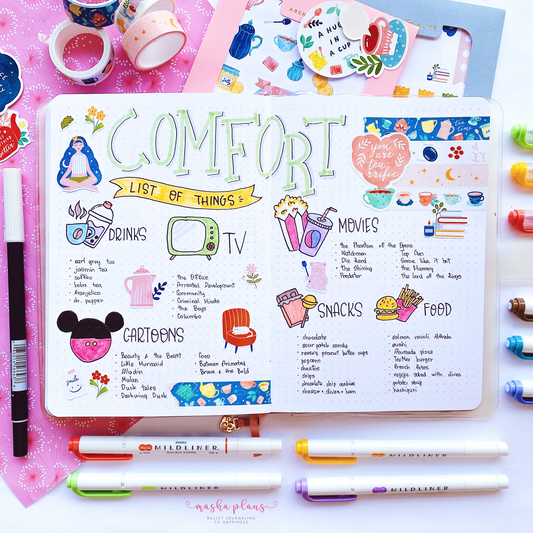 A HUG
IN A
CUP
COMFORT
LIST OF THINGS
you are
tea
rrific
DRINKS
earl grey tea
jasmin tea
coffee
boba tea
Franjelico
dr. pepper
TV
the Office
Arrested Development
Community
Criminal Minds
the Boys
Columbo
CARTOONS
Beauty & the Beast
Little Mermaid
Alladin
Mulan
Duck tales
Darkwing Duck
Coco
Batman Animated
Brave & the Bold
smile
MOVIES
the Phantom of the Opera
Watchmen
Die Hard
The Shining
Predator
Top Gun
Some like it hot
the Mummy
the Lord of the Rings
SNACKS
chocolate
sour patch candy
reese's peanut butter cups
popcorn
cheetos
chips
chocolate chip cookies
cheese + olives + ham
FOOD
salmon ravioli Alfredo
sushi
Marinada pizza
TexMex burger
french fries
veggie salad with olives
potato soup
hachapuri
ZEBRA
MILDLINER
MILDLINER
MILDLINER
MILDLINER
masha plans
BULLET JOURNALING
TO HAPPINESS